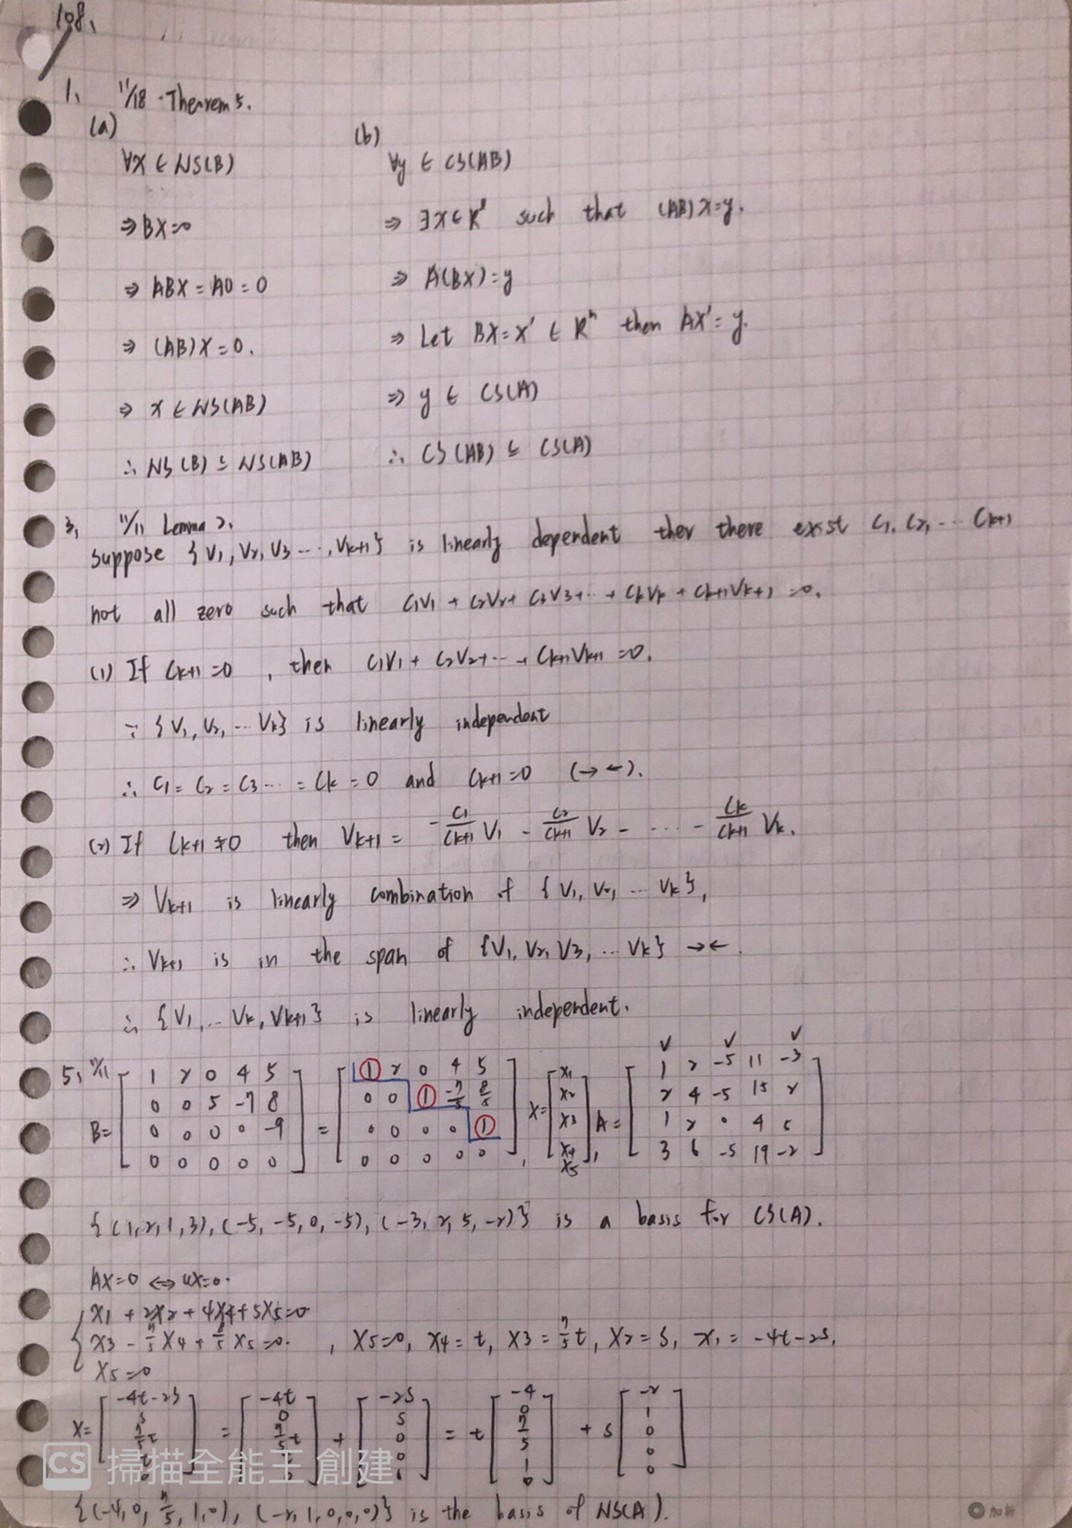 108.
1. 11/18 . Theorem 5.
(a)
∀x ∈ NS(B)
⇒ BX=0
⇒ ABX = A0 = 0
⇒ (AB)X = 0.
⇒ x ∈ NS(AB)
∴ NS(B) ⊆ NS(AB)
(b)
∀y ∈ CS(AB)
⇒ ∃x∈R such that (AB)x=y.
⇒ A(BX)=y
⇒ Let BX=X' ∈ Rⁿ then AX'=y.
⇒ y ∈ CS(A)
∴ CS(AB) ⊆ CS(A)
3. 11/11 Lemma 2.
suppose {V1, V2, V3 ..., Vk+1} is linearly dependent then there exist C1, C2, ... Ck+1
not all zero such that C1V1 + C2V2 + C3V3+...+ CkVk + Ck+1Vk+1 =0.
(1) If Ck+1=0 , then C1V1 + C2V2+...+ Ck+1Vk+1 =0.
∵ {V1, V2, ... Vk} is linearly independent
∴ C1 = C2 = C3... = Ck = 0 and Ck+1=0 (→←).
(2) If Ck+1≠0 then Vk+1 = -C1/Ck+1 V1 - C2/Ck+1 V2 - .... - Ck/Ck+1 Vk.
⇒ Vk+1 is linearly combination of {V1, V2, ... Vk},
∴ Vk+1 is in the span of {V1, V2, V3, ... Vk} →←.
∴ {V1, ... Vk, Vk+1} is linearly independent.
5. 11/11
B= [1 2 0 4 5
0 0 5 -7 8
0 0 0 0 -9
0 0 0 0 0]
= [1 2 0 4 5
0 0 1 -7/5 8/5
0 0 0 0 1
0 0 0 0 0],
X= [x1
x2
x3
x4
x5],
A= [1 2 -5 11 -3
2 4 -5 15 2
1 2 0 4 5
3 6 -5 19 -2]
{(1,2,1,3), (-5, -5, 0, -5), (-3, 2, 5, -2)} is a basis for CS(A).
AX=0 ⇔ UX=0.
{ X1 + 2X2 + 4X4 + 5X5=0
X3 - 7/5 X4 + 8/5 X5 =0. , X5=0, X4 = t, X3 = 7/5 t, X2 = s, x1 = -4t-2s,
X5=0
X= [-4t-2s
s
7/5 t
t
0]
= [-4t
0
7/5 t
t
0]
+ [-2s
s
0
0
0]
= t [-4
0
7/5
1
0]
+ s [-2
1
0
0
0]
{(-4, 0, 7/5, 1, 0), (-2, 1, 0, 0, 0)} is the basis of NS(A).
CS 掃描全能王 創建